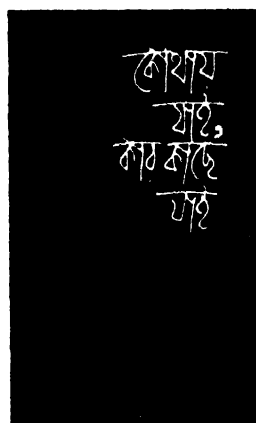 কোথায়
যাই,
কার কাছে
যাই